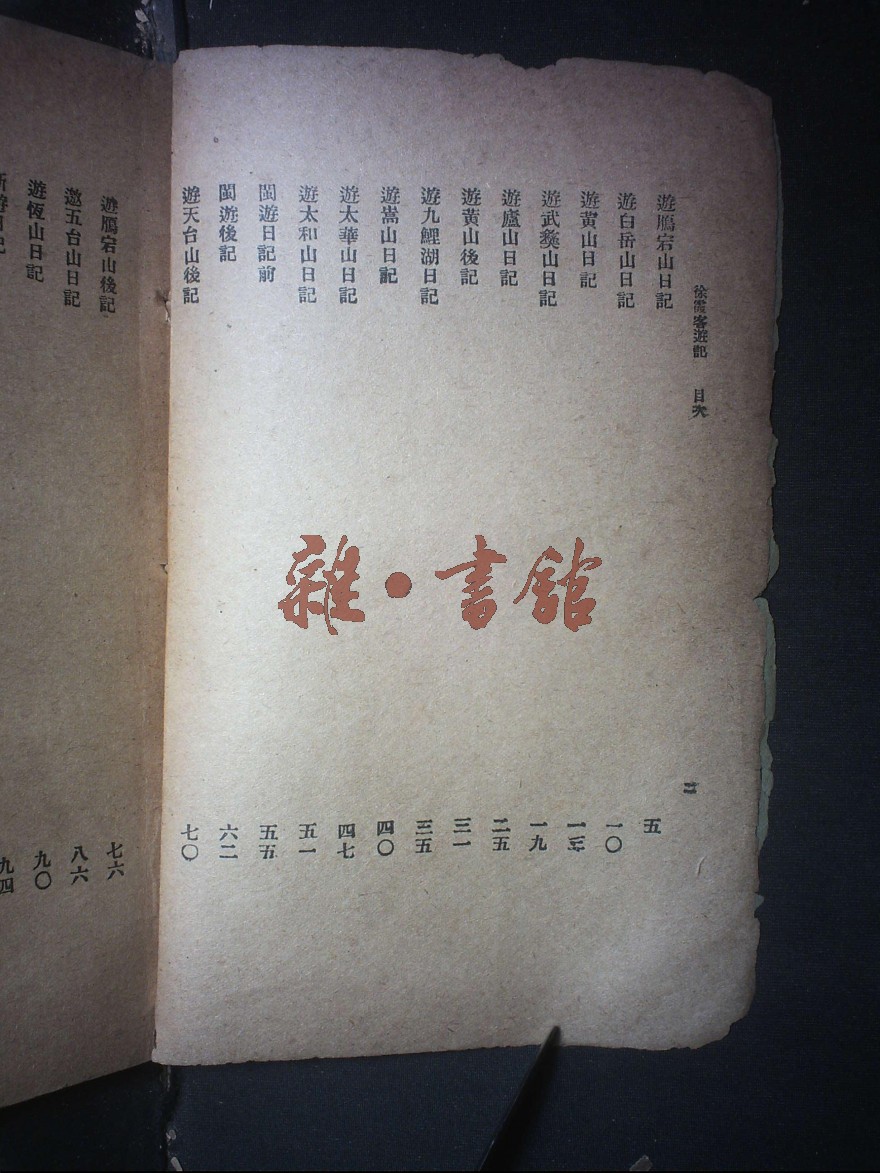 徐霞客遊記 目次 二
遊鴈宕山日記 五
遊白岳山日記 一〇
遊黃山日記 一三
遊武彝山日記 一九
遊廬山日記 二五
遊黃山後記 三一
遊九鯉湖日記 三五
遊嵩山日記 四〇
遊太華山日記 四七
遊太和山日記 五一
閩遊日記前 五五
閩遊後記 六二
遊天台山後記 七〇
遊鴈宕山後記 七六
遊五台山日記 八六
遊恆山日記 九〇
遊日記 九四
雜·書館